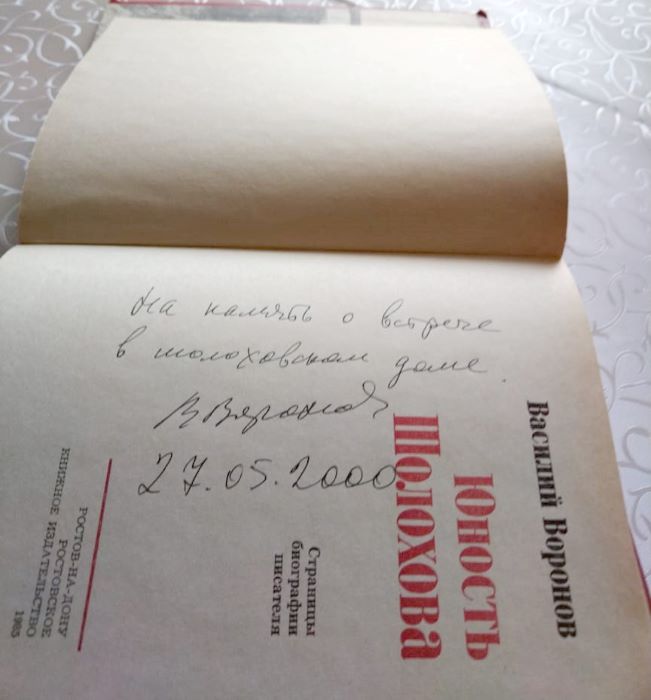 На память о встрече
в шолоховском доме.
В Воронов
27.05.2000
Василий Воронов
Юность
Шолохова
Страницы
биографии
писателя
РОСТОВ-НА-ДОНУ
РОСТОВСКОЕ
КНИЖНОЕ ИЗДАТЕЛЬСТВО
1985